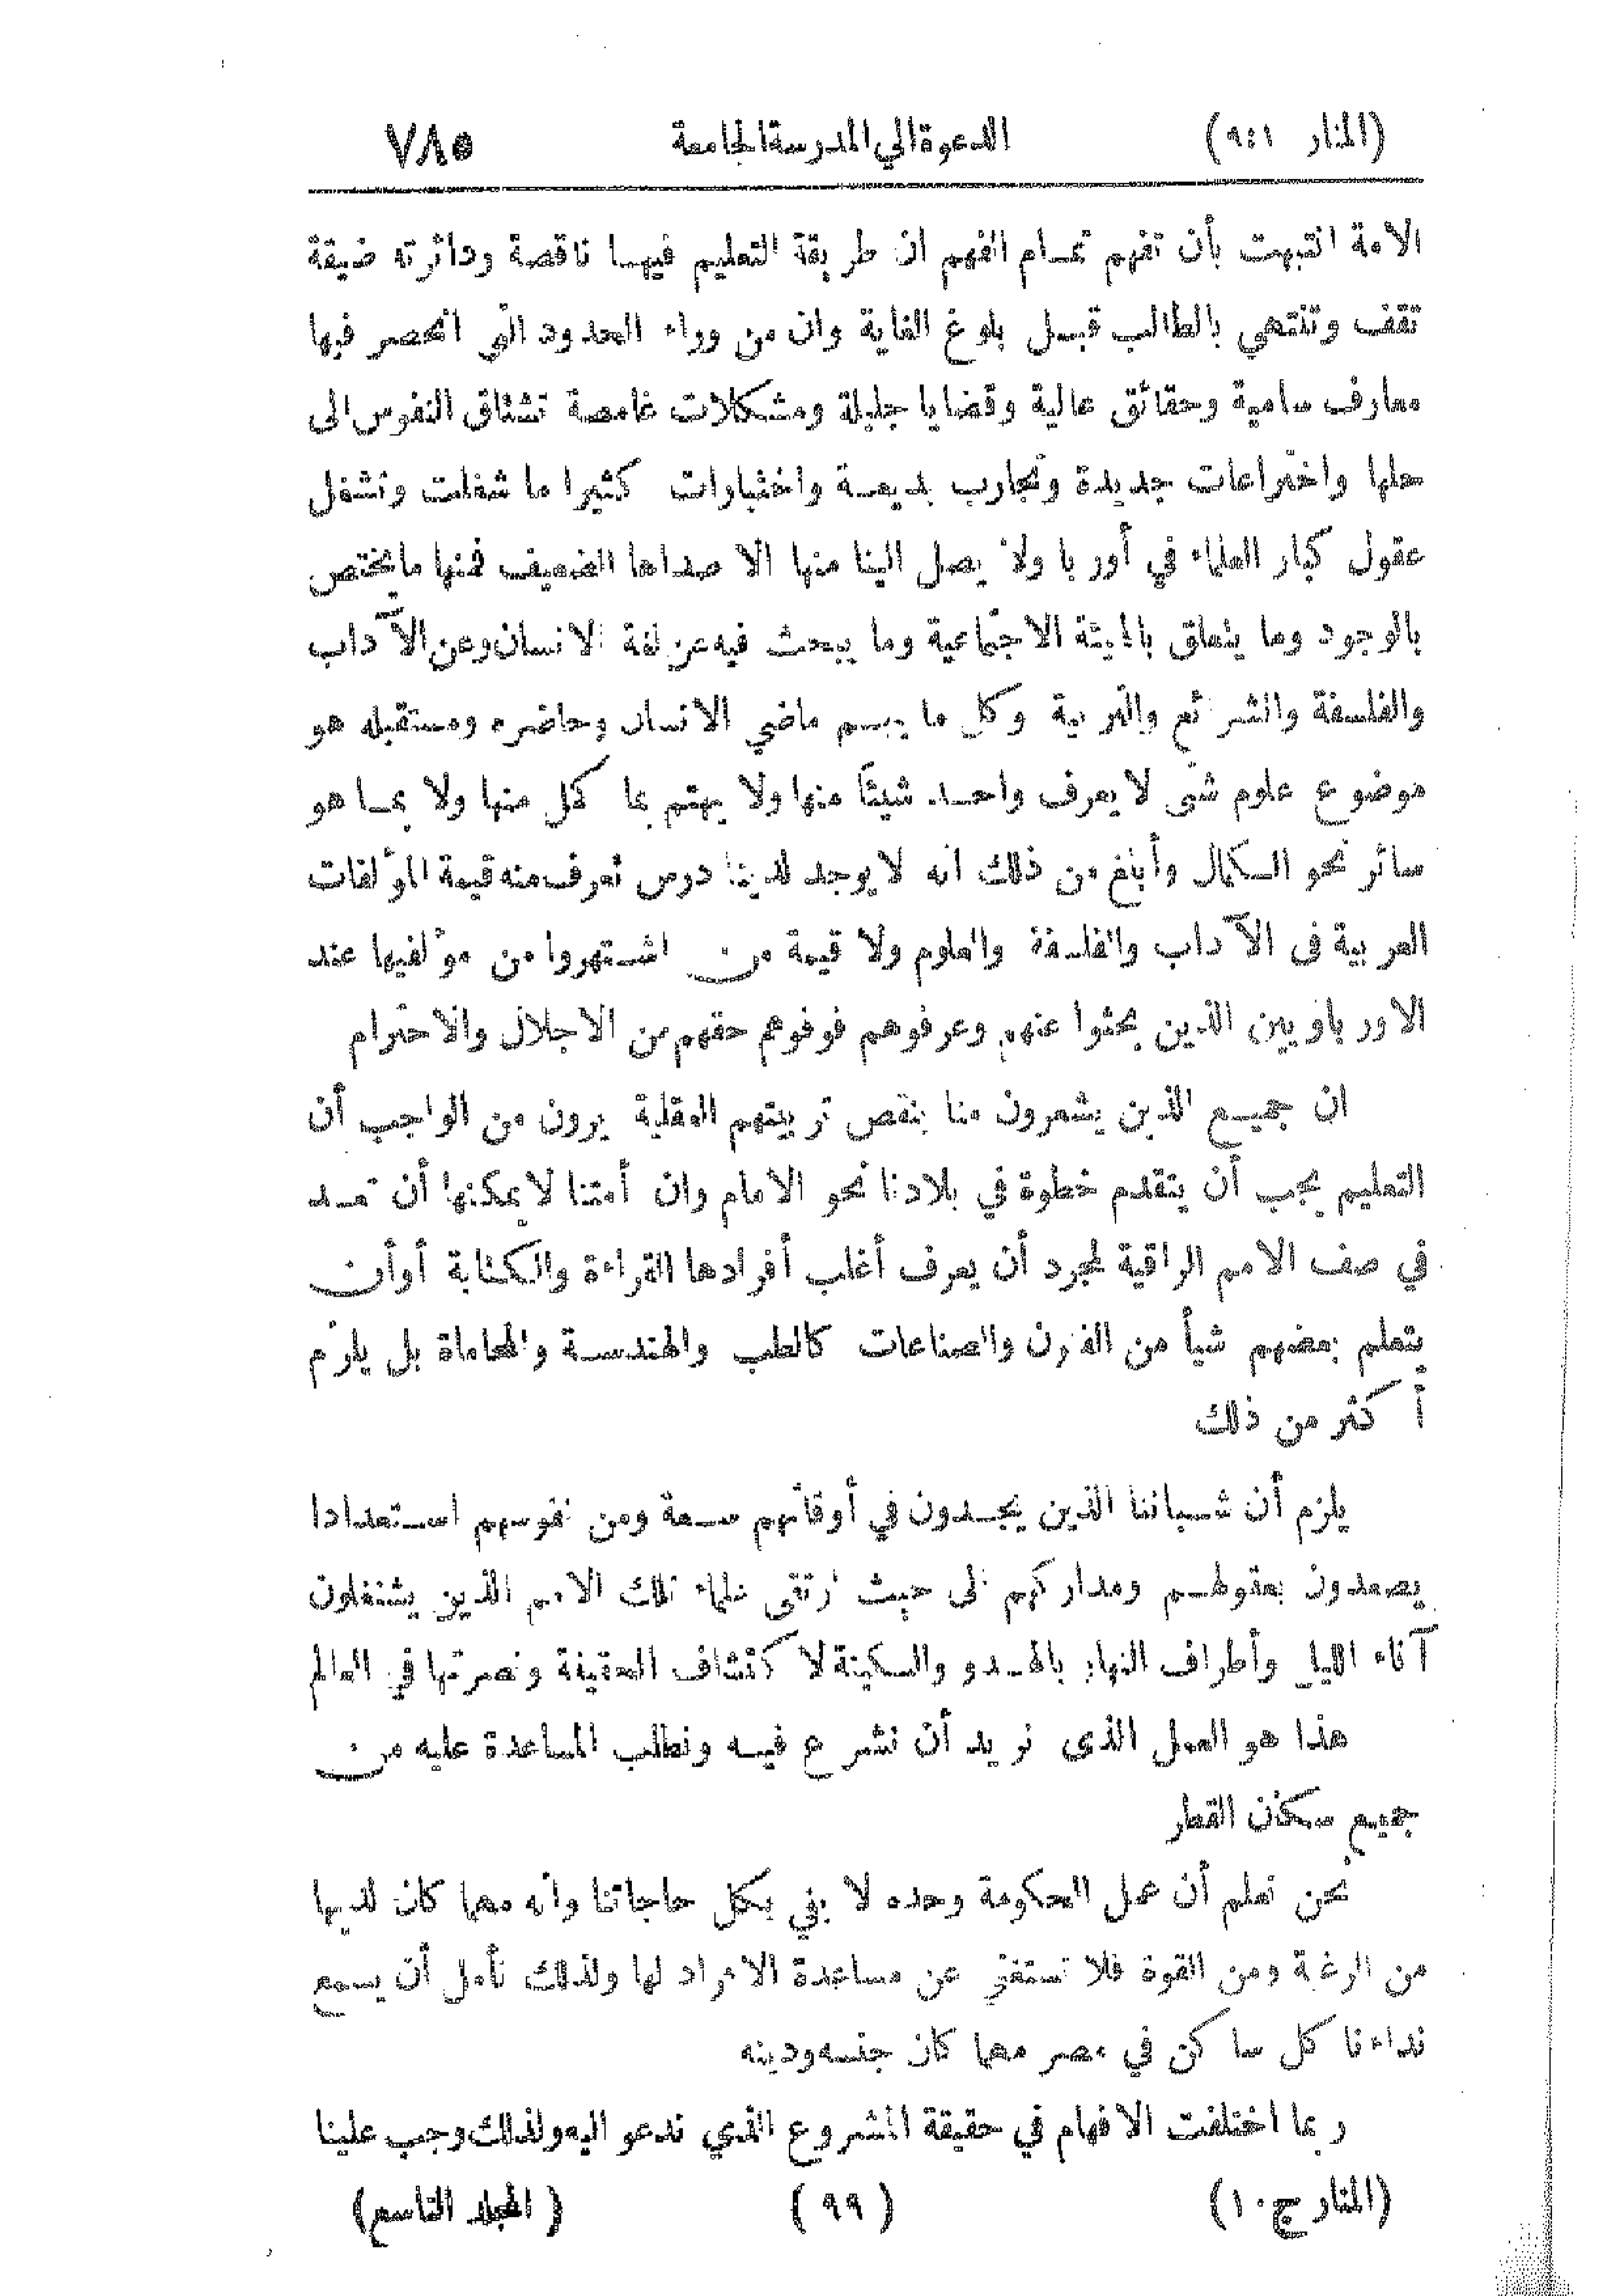 (المنار ٩:١) الدعوة الي المدرسة الجامعة ٧٨٥
الامة انتبهت بأن تفهم تمام الفهم ان طريقة التعليم فيها ناقصة ودائرته ضيقة
تقف وتنتهي بالطالب قبل بلوغ الغاية وان من وراء الحدود التي انحصر فيها
معارف سامية وحقائق عالية وقضايا جليلة ومشكلات غامضة تشتاق النفوس الى
حلها واختراعات جديدة وتجارب بديعة واختبارات كثيرا ما شغلت وتشغل
عقول كبار العلماء في أوربا ولا يصل الينا منها الا صداها الضعيف فمنها ما يختص
بالوجود وما يتعلق بالهيئة الاجتماعية وما يبحث فيه عن لغة الانسان وعن الآداب
والفلسفة والشرائع والتربية وكل ما يهم ماضي الانسان وحاضره ومستقبله هو
موضوع علوم شتى لا يعرف واحد شيئاً منها ولا يهتم بما كمل منها ولا بما هو
سائر نحو الكمال وأبلغ من ذلك انه لا يوجد لدينا درس تعرف منه قيمة المؤلفات
العربية فى الآداب والفلسفة والعلوم ولا قيمة من اشتهروا من مؤلفيها عند
الاورباويين الذين بحثوا عنهم وعرفوهم فوفوهم حقهم من الاجلال والاحترام
ان جميع الذين يشعرون منا بنقص تربيتهم العقلية يرون من الواجب أن
التعليم يجب أن يتقدم خطوة في بلادنا نحو الامام وان أمتنا لا يمكنها أن تعد
في صف الامم الراقية لمجرد أن يعرف أغلب أفرادها القراءة والكتابة أو أن
يتعلم بعضهم شيأ من الفنون والصناعات كالطب والهندسة والمحاماة بل يلزم
أكثر من ذلك
يلزم أن شباننا الذين يجدون في أوقاتهم سعة ومن نفوسهم استعدادا
يصعدون بعقولهم ومداركهم الى حيث ارتقى علماء تلك الامم الذين يشتغلون
آناء الليل وأطراف النهار بالهدو والسكينة لاكتشاف الحقيقة ونصرتها في العالم
هذا هو العمل الذى نريد أن نشرع فيه ونطلب المساعدة عليه من
جميع سكان القطر
نحن نعلم أن عمل الحكومة وحده لا يفي بكل حاجاتنا وانه مهما كان لديها
من الرغبة ومن القوة فلا تستغني عن مساعدة الافراد لها ولذلك نأمل أن يسمع
نداءنا كل ساكن في مصر مهما كان جنسه ودينه
ربما اختلفت الافهام في حقيقة المشروع الذي ندعو اليه ولذلك وجب علينا
(المنار ج ١٠) (٩٩) (المجلد التاسع)